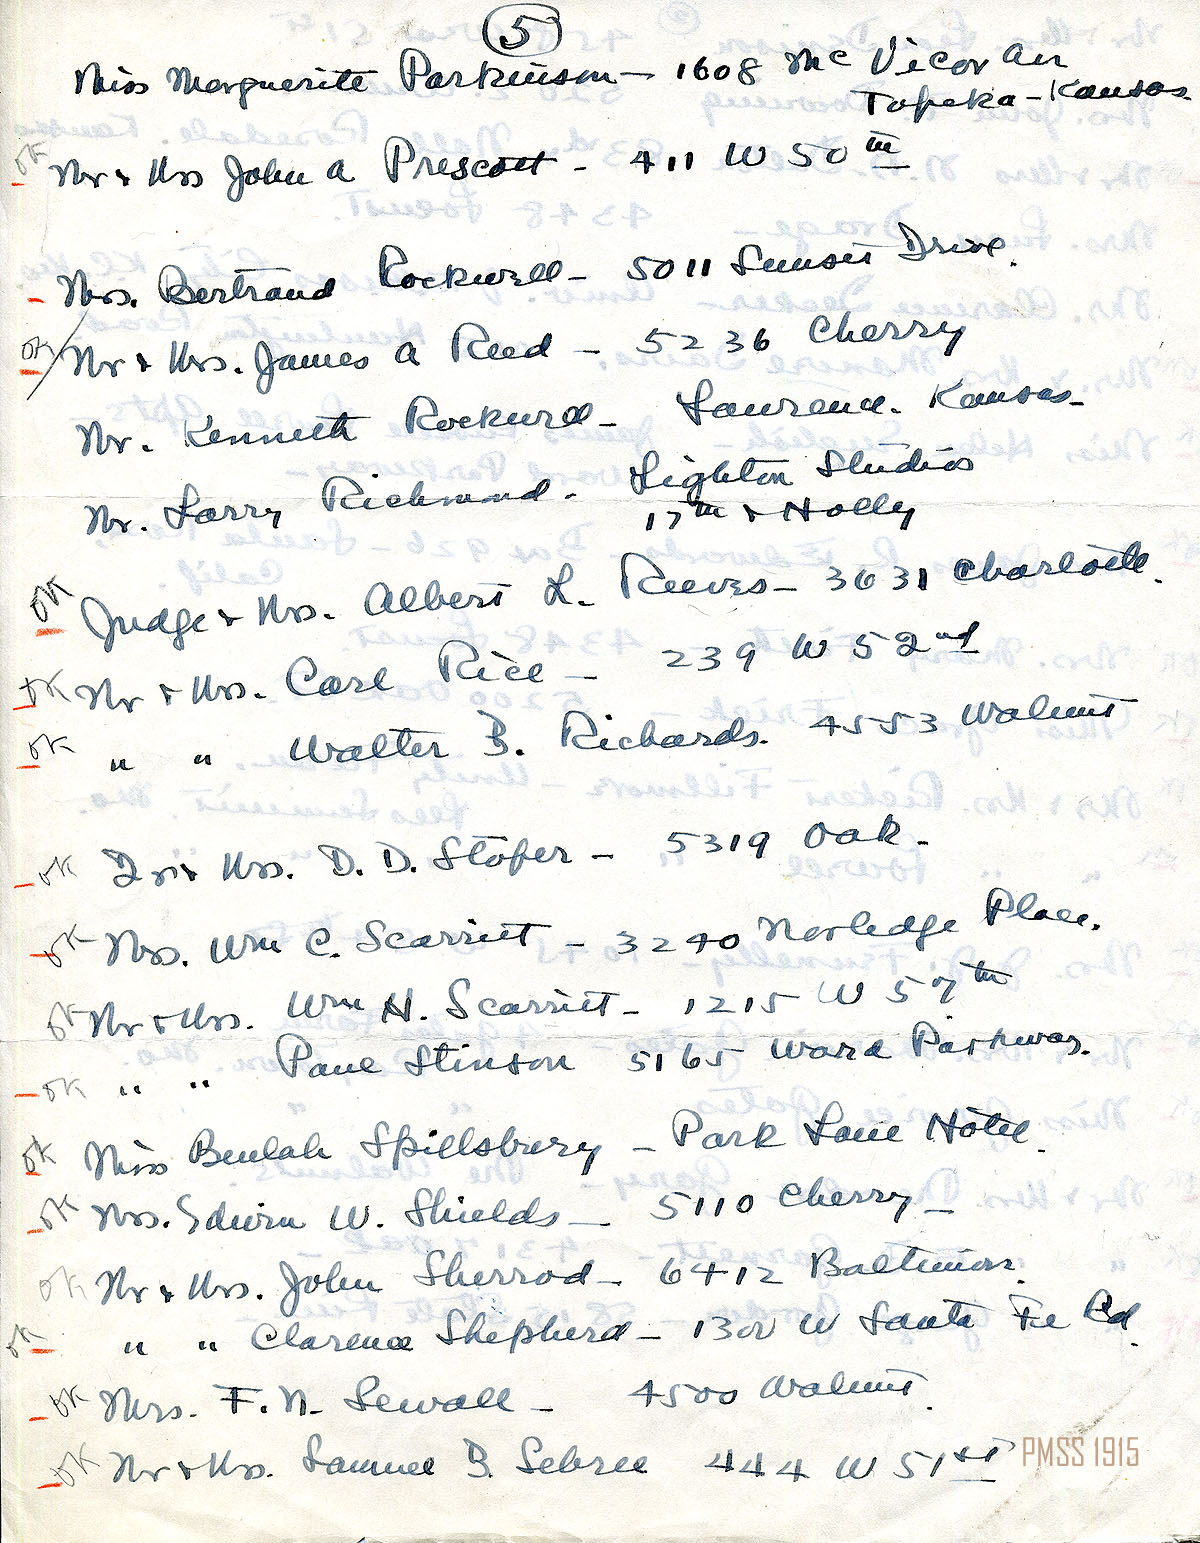 5
Miss Marguerite Parkinson - 1608 Mc Vicar Av
Topeka - Kansas
OK Mr & Mrs John A Prescott - 411 W 50th
Mrs. Bertrand Rockwell - 5011 Sunset Drive.
OK Mr & Mrs. James A Reed - 5236 Cherry
Mr. Kenneth Rockwell - Lawrence. Kansas -
Mr. Larry Richmond - Lighton Studios
17th & Holly
OK Judge & Mrs. Albert L. Reeves - 3631 Charlotte.
OK Mr & Mrs. Carl Rice - 239 W 52nd
OK " " Walter B. Richards. 4553 Walnut
OK Dr & Mrs. D. D. Stofer - 5319 Oak -
OK Mrs. Wm C. Scarritt - 3240 Norledge Place.
OK Mr & Mrs. Wm H. Scarritt - 1215 W 57th
OK " " Paul Stinson 5165 Ward Parkway.
OK Miss Beulah Spillsbury - Park Lane Hotel.
OK Mrs. Edwin W. Shields - 5110 Cherry -
OK Mr & Mrs. John Sherrod - 6412 Baltimore.
OK " " Clarence Shepherd - 1300 W Santa Fe Rd.
OK Mrs. F. N. Sewall - 4500 Walnut.
OK Mr & Mrs. Samuel B. Sebree 444 W 51st
PMSS 1915